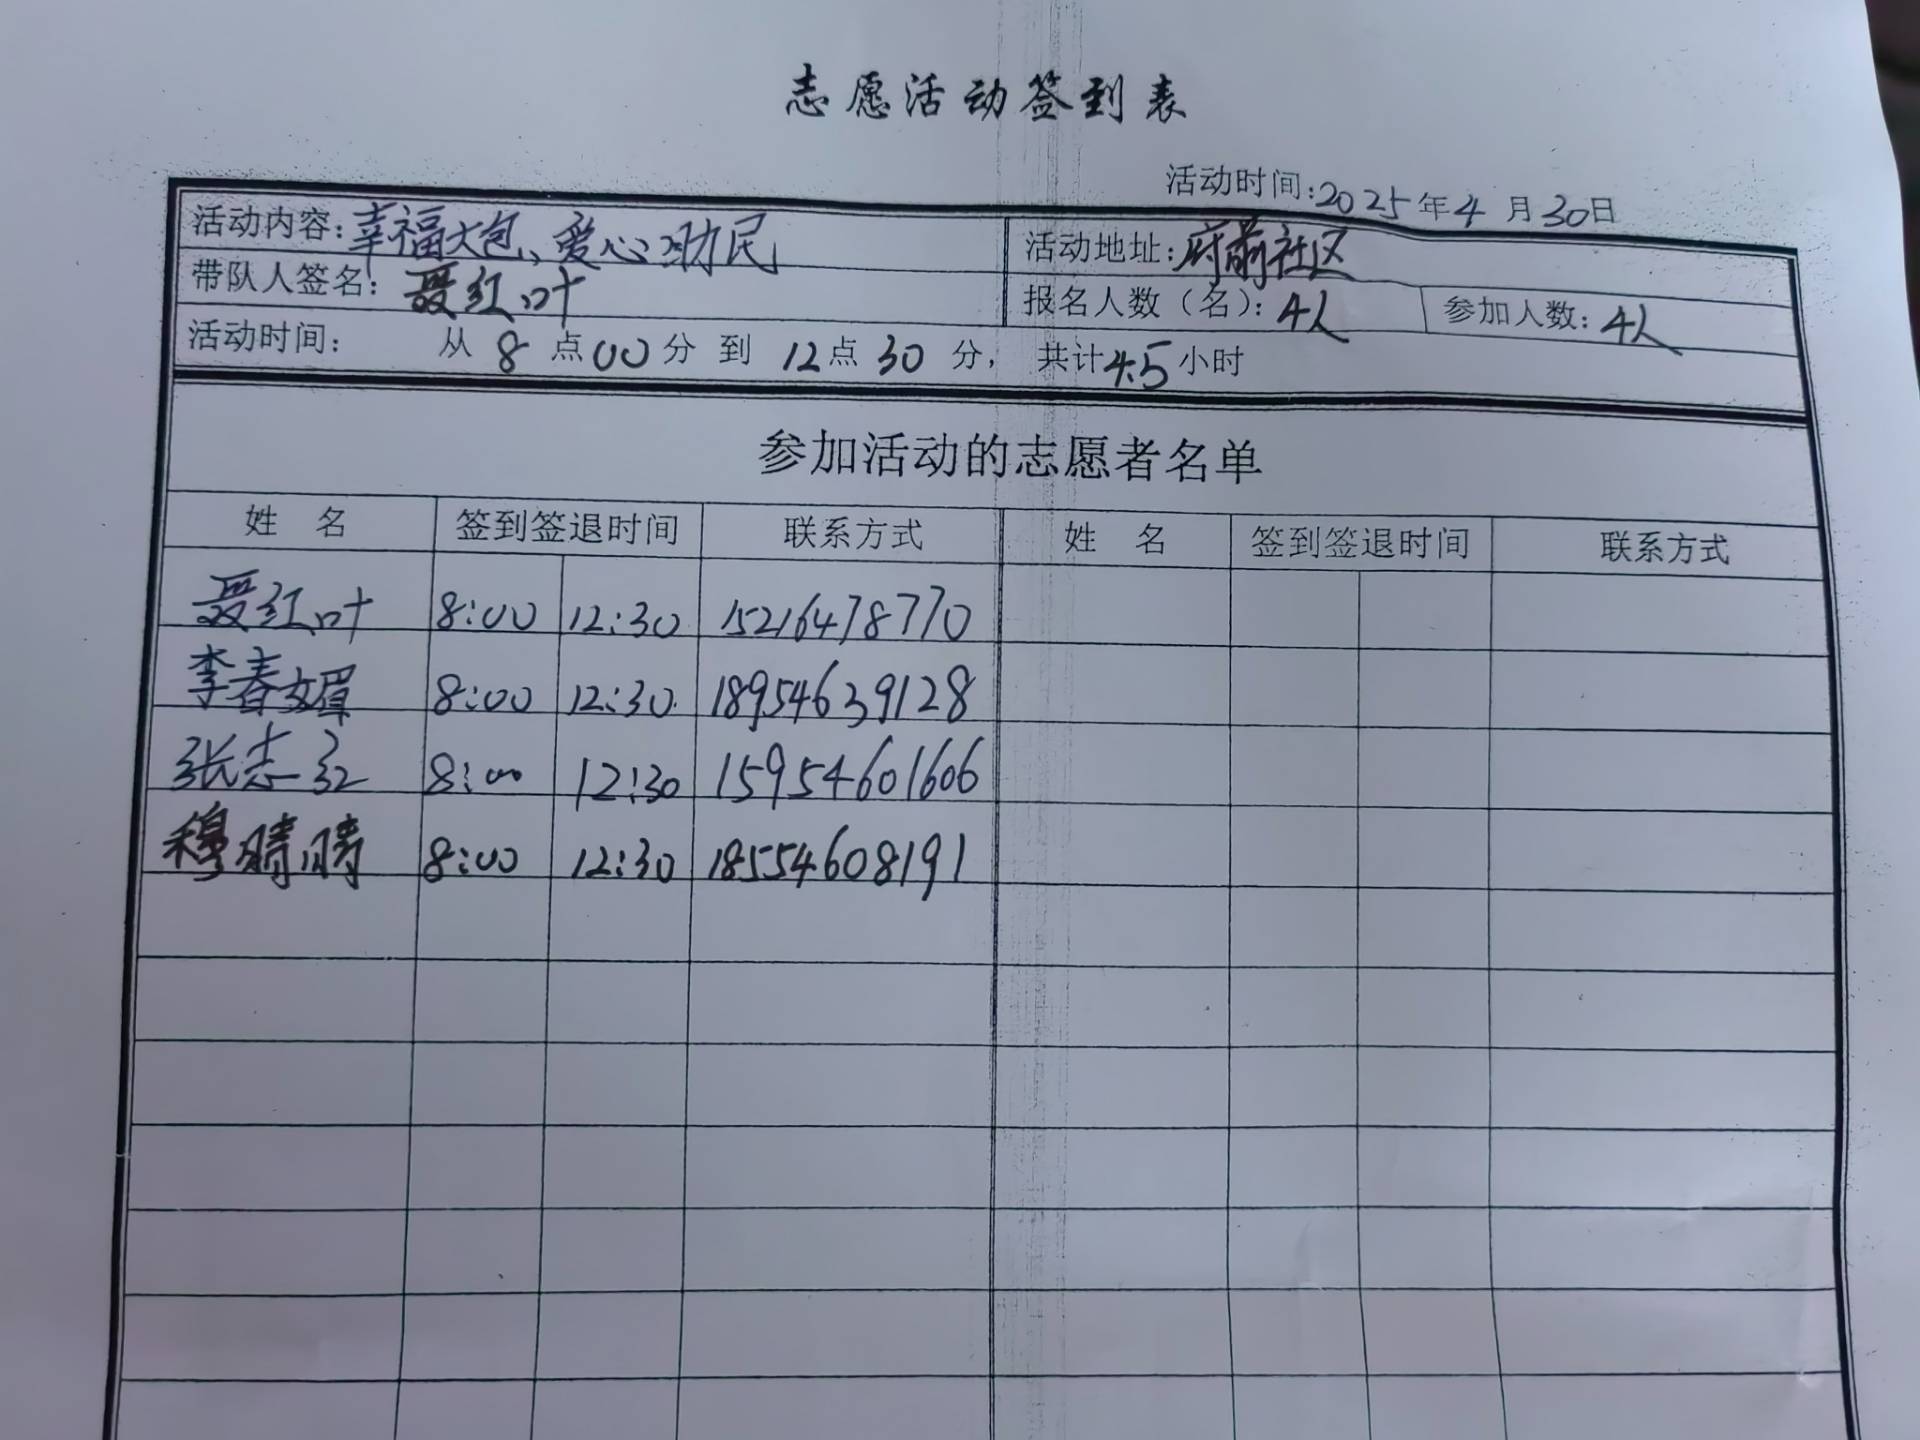 志愿活动签到表
活动时间:2025年4月30日
活动内容:幸福大包、爱心助民 活动地址:府前社区
带队人签名:聂红叶 报名人数（名）:4人 参加人数:4人
活动时间: 从8点00分到12点30分, 共计4.5小时
参加活动的志愿者名单
姓 名 签到签退时间 联系方式 姓 名 签到签退时间 联系方式
聂红叶 8:00 12:30 15216478770
李春媚 8:00 12:30 18954639128
张志 8:00 12:30 15954601606
穆晴晴 8:00 12:30 18554608191